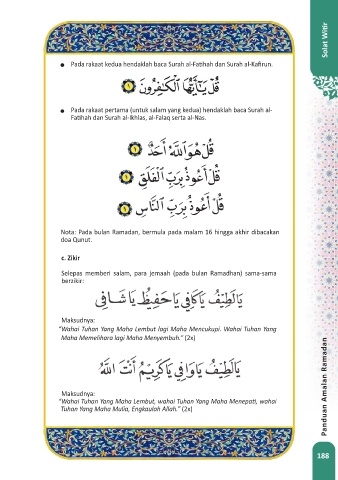 Solat Witir
• Pada rakaat kedua hendaklah baca Surah al-Fatihah dan Surah al-Kafirun.
قُلْ يَٰٓأَيُّهَا ٱلْكَٰفِرُونَ ١
• Pada rakaat pertama (untuk salam yang kedua) hendaklah baca Surah al-
Fatihah dan Surah al-Ikhlas, al-Falaq serta al-Nas.
قُلْ هُوَ ٱللَّهُ أَحَدٌ ١
قُلْ أَعُوذُ بِرَبِّ ٱلْفَلَقِ ١
قُلْ أَعُوذُ بِرَبِّ ٱلنَّاسِ ١
Nota: Pada bulan Ramadan, bermula pada malam 16 hingga akhir dibacakan
doa Qunut.
c. Zikir
Selepas memberi salam, para jemaah (pada bulan Ramadhan) sama-sama
berzikir:
يَا لَطِيْفُ يَا كَافِي يَا حَفِيْظُ يَا شَافِي
Maksudnya:
"Wahai Tuhan Yang Maha Lembut lagi Maha Mencukupi. Wahai Tuhan Yang
Maha Memelihara lagi Maha Menyembuh." (2x)
يَا لَطِيْفُ يَا وَافِي يَا كَرِيْمُ أَنْتَ اللَّهُ
Maksudnya:
"Wahai Tuhan Yang Maha Lembut, wahai Tuhan Yang Maha Menepati, wahai
Tuhan Yang Maha Mulia, Engkaulah Allah." (2x)
Panduan Amalan Ramadan
188